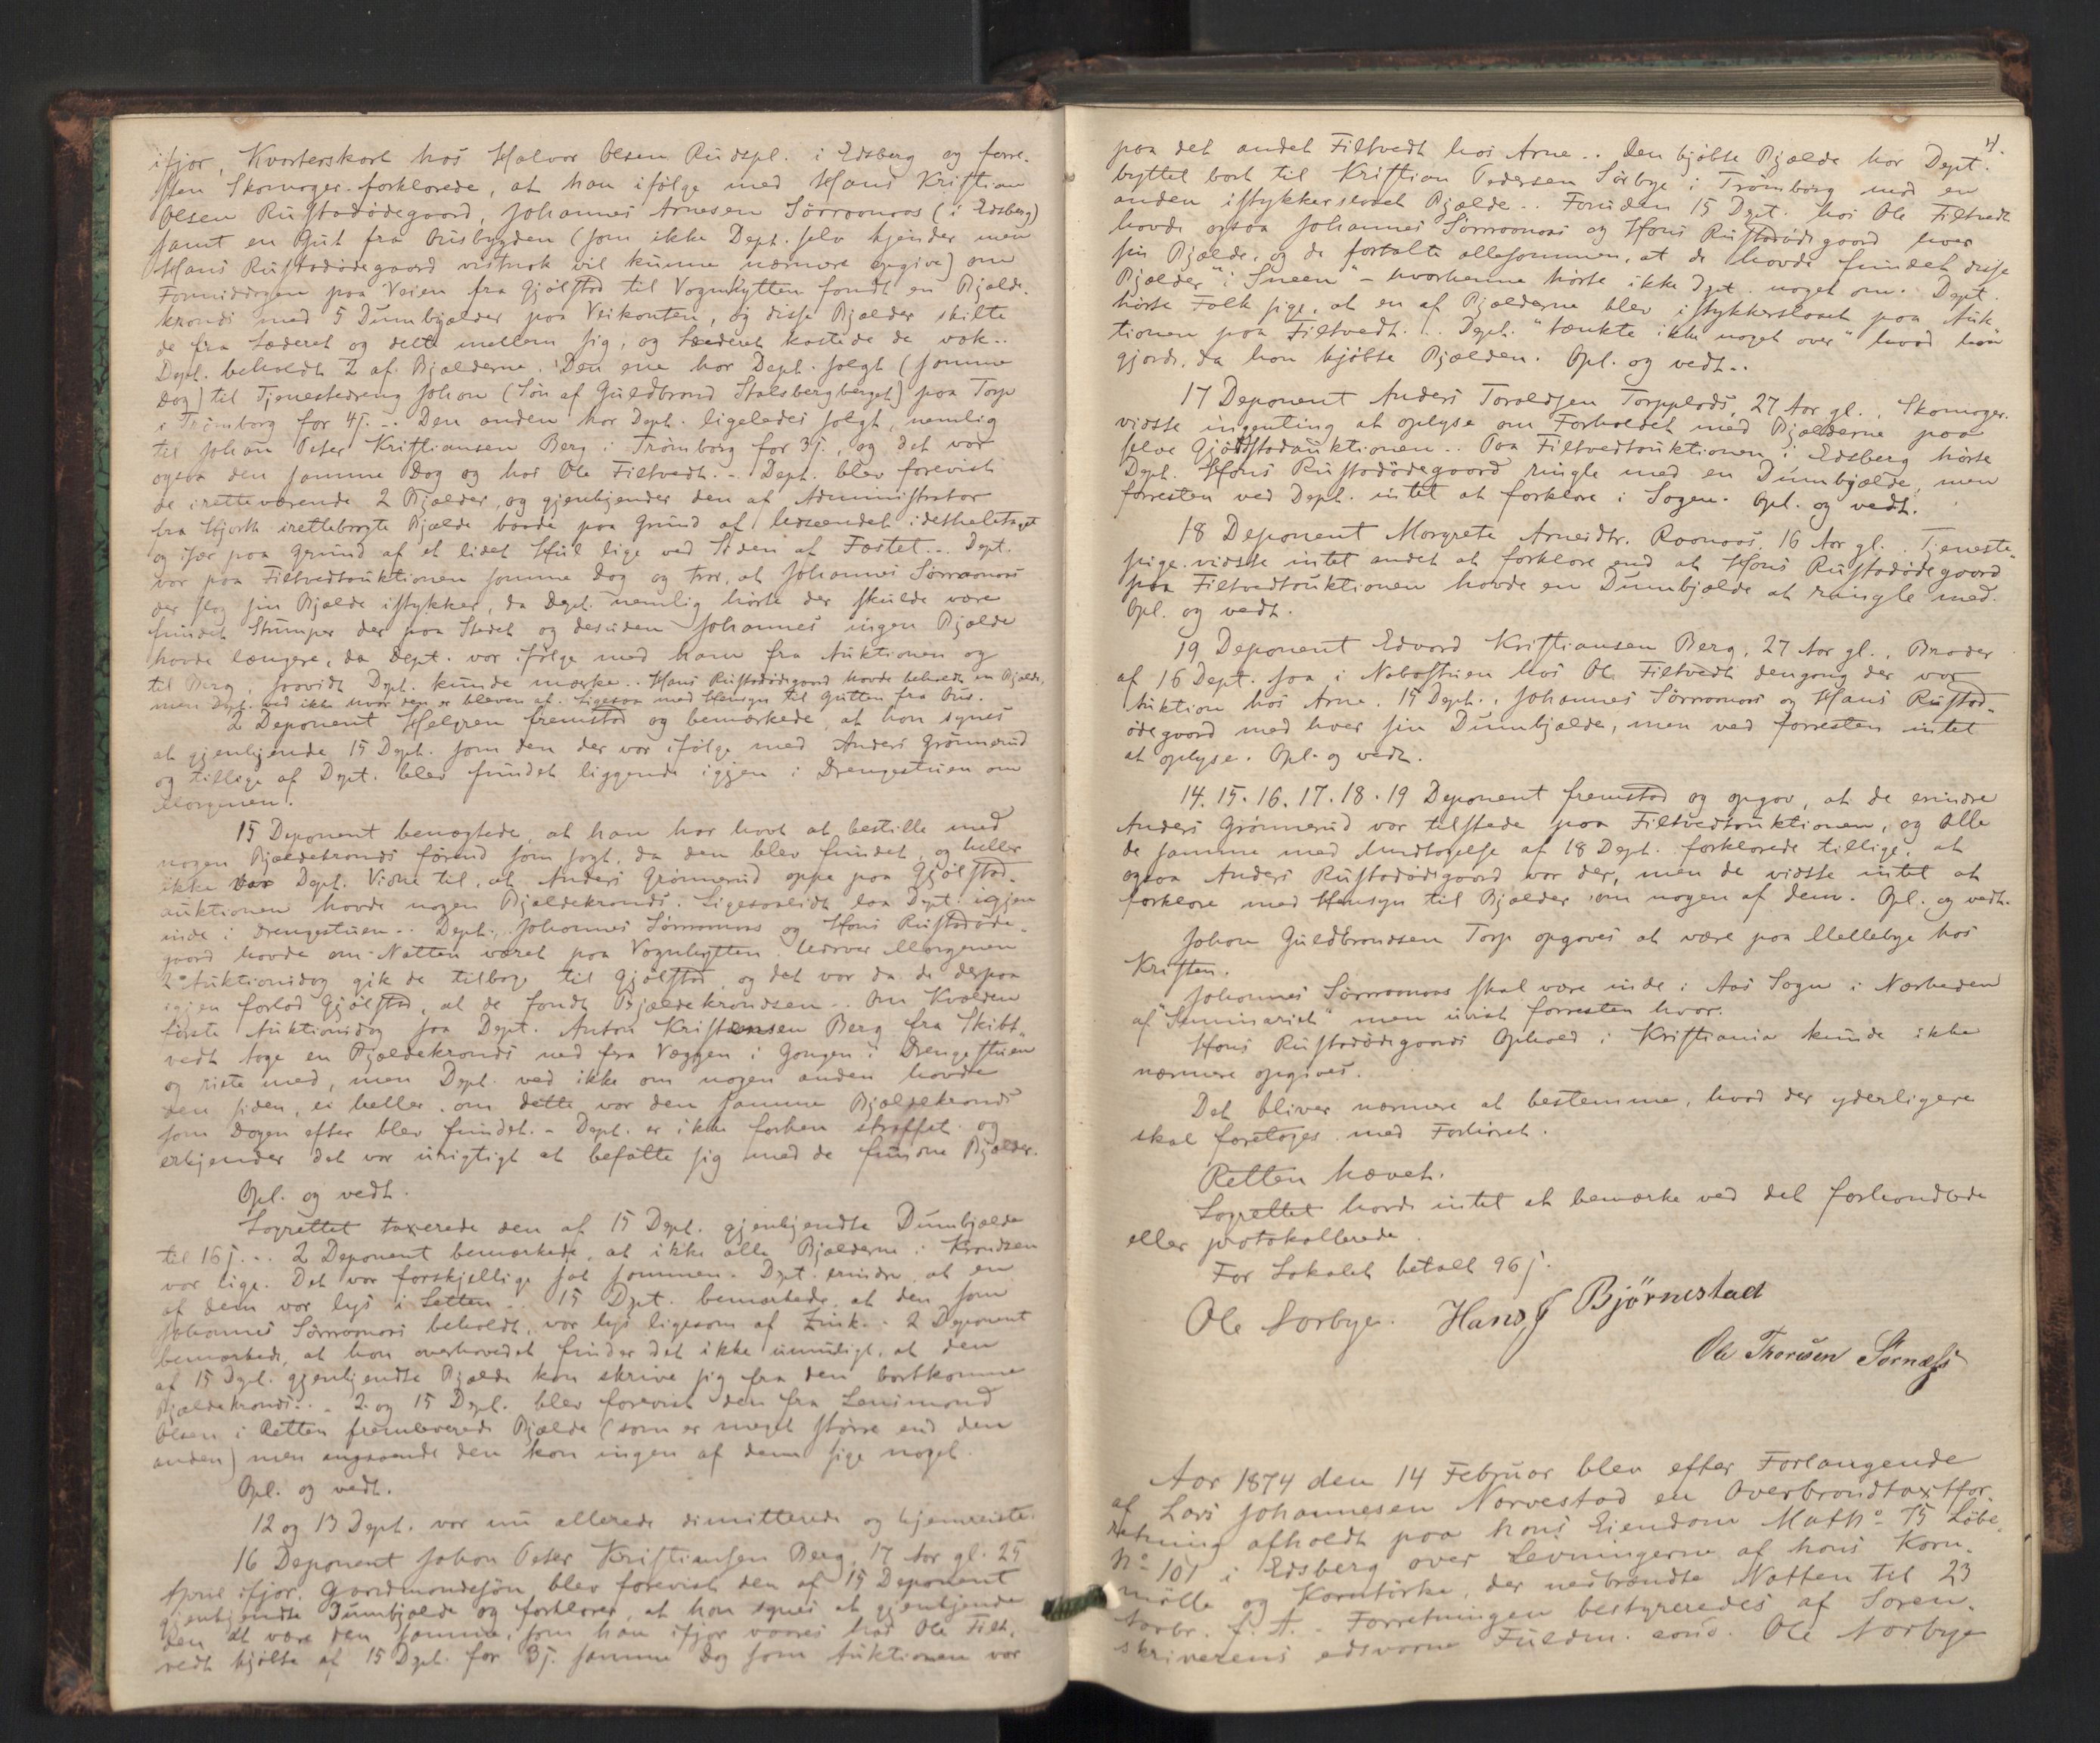 ifjor, Kvarterskarl hos Halvor Olsen Rudspl. i Edsberg og forre-
sten Skomager forklarede, at han ifølge med Hans Kristian
Olsen Rustadødegaard, Johannes Arnesen Sørraanaas (i Edsberg)
samt en Gut fra Ousbygden (som ikke Dept. selv kjender men
Hans Rustadødegaard vistnok vil kunne nærmere opgive) om
Formiddagen paa Veien fra Gjølstad til Vognhytten fandt en Bjælde-
krands med 5 Dumbjælder paa Veikanten, og disse Bjælder skilte
de fra Læderet og delte mellem sig, og Læderet kastede de væk..
Dept. beholdt 2 af Bjælderne. Den ene har Dept. solgt (samme
Dag) til Tjenestedreng Johan (Søn af Guldbrand Stalsbergberget) paa Torp
i Trømborg for 4s. -. Den anden har Dept. ligeledes solgt, nemlig
til Johan Peter Kristiansen Berg i Trømborg for 3s., og det var
ogsaa den samme Dag og hos Ole Filtvedt. -. Dept. blev forevist
de iretteværende 2 Bjælder, og gjenkjender den af Administrator
fra Hjorth irettebragte Bjælde baade paa Grund af Udseendet idetheletaget
og især paa Grund af et lidet Hul lige ved Siden af Fæstet... Dept.
var paa Filtvedtauktionen samme Dag og tror, at Johannes Sørraanaas
der slog sin Bjælde istykker, da Dept. nemlig hørte der skulde være
fundet Stumper der paa Stedet og desuden Johannes ingen Bjælde
havde længere, da Dept. var ifølge med ham fra Auktionen og
til Berg, saavidt Dept. kunde mærke.. Hans Rustadødegaard havde beholdt en Bjælde,
men Dept. ved ikke hvor den er bleven af. Ligesaa med Hensyn til Gutten fra Ous.
2 Deponent Helgren fremstod og bemærkede, at han synes
at gjenkjende 15 Dept. som den der var ifølge med Anders Grønnerud
og tillige af Dept. blev fundet liggende igjen i Drengestuen om
Morgenen.
15 Deponent benægtede, at han har havt at bestille med
nogen Bjældekrands førend som sagt, da den blev fundet, og heller
ikke var Dept. Vidne til, at Anders Grønnerud oppe paa Gjølstad-
auktionen havde nogen Bjældekrands. Ligesaalidt laa Dept. igjen
inde i Drengestuen.. Dept., Johannes Sørraanaas og Hans Rustadøde-
gaard havde om Natten været paa Vognhytten. Udover Morgenen
2n Auktionsdag gik de tilbage til Gjølstad, og det var da de derpaa
igjen forlod Gjølstad, at de fandt Bjældekrandsen... Om Kvælden
første Auktionsdag saa Dept. Anton Kristensen Berg fra Skibt-
vedt tage en Bjældekrands ned fra Væggen i Gangen i Drengestuen
og riste med, men Dept. ved ikke om nogen anden havde
den siden, ei heller om dette var den samme Bjældekrands
som Dagen efter blev fundet. - Dept. er ikke forhen straffet og
erkjender det var urigtigt at befatte sig med de fundne Bjælder.
Opl. og vedt.
Lagrettet taxerede den af 15 Dept. gjenkjendte Dumbjælde
til 16s... 2 Deponent bemærkede, at ikke alle Bjælderne i Krandsen
var lige. Det var forskjellige sat sammen. Dept. erindre, at en
af dem var lys i Letten... 15 Dpt. bemærkede, at den som
Johannes Sørraanaas beholdt, var lys ligesom af Zink.. 2 Deponent
bemærkede, at han overhovedet finder det ikke umuligt, at den
af 15 Dept. gjenkjendte Bjælde kan skrive sig fra den bortkomne
Bjældekrands... 2 og 15 Dept. blev forevist den fra Lensmand
Olsen i Retten fremleverede Bjælde (som er meget større end den
anden) men angaaende den kan ingen af dem sige noget.
Opl. og vedt.
12 og 13 Dept. var nu allerede dimitterede og hjemreiste.
16 Deponent Johan Peter Kristiansen Berg, 17 Aar gl. 25
April ifjor, Gaardmandssøn, blev forevist den af 15 Deponent
gjenkjendte Dumbjælde og forklarer, at han synes at gjenkjende
den at være den samme, som han ifjor vaares hos Ole Filt-
vedt kjøbte af 15 Dept. for 3s. samme Dag som Auktionen var
4.
paa det andet Filtvedt hos Arne.. Den kjøbte Bjælde har Dept.
byttet bort til Kristian Pedersen Sørbye i Trømborg mod en
anden istykkerslaaet Bjælde.. Foruden 15 Dept. hos Ole Filtvedt
havde ogsaa Johannes Sørraanaas og Hans Rustadødegaard hver
sin Bjælde, og de fortalte allesammen, at de havde fundet disse
Bjælder "i Sneen" - hvorhenne hørte ikke Dpt. noget om. Dept.
hørte Folk sige, at en af Bjælderne blev istykkerslaaet paa Auk-
tionen paa Filtvedt... Dept. "tænkte ikke noget over" hvad han
gjorde, da han kjøbte Bjælden. Opl. og vedt..
17 Deponent Anders Toraldsen Torpplads, 27 Aar gl., Skomager.
vidste ingenting at oplyse om Forholdet med Bjælderne paa
selve Gjølstadauktionen.. Paa Filtvedtauktionen i Edsberg hørte
Dept. Hans Rustadødegaard ringle med en Dumbjælde, men
forresten ved Dept. intet at forklare i Sagen. Opl. og vedt.
18 Deponent Margrete Arnesdtr. Raanaas, 16 Aar gl. Tjeneste-
pige vidste intet andet at forklare end at Hans Rustadødegaard
paa Filtvedtauktionen havde en Dumbjælde at ringle med.
Opl. og vedt.
19 Deponent Edvard Kristiansen Berg, 27 Aar gl., Broder
af 16 Dept. saa i Nabostuen hos Ole Filtvedt dengang der var
Auktion hos Arne. 15 Dept., Johannes Sørraanaas og Hans Rustad-
ødegaard med hver sin Dumbjælde, men ved forresten intet
at oplyse. Opl. og vedt.
14. 15. 16. 17. 18. 19 Deponent fremstod og opgav, at de erindre
Anders Grønnerud var tilstede paa Filtvedtauktionen, og Alle
de samme med Undtagelse af 18 Dept. forklarede tillige, at
ogsaa Anders Rustadødegaard var der, men de vidste intet at
forklare med Hensyn til Bjælder om nogen af dem. Opl. og vedt.
Johan Guldbrandsen Torp opgaves at være paa Mellebye hos
Kristen.
Johannes Sørraanaas skal være inde i Aas Sogn i Nærheden
af "Seminariet" men uvist forresten hvor.
Hans Rustadødegaards Ophold i Kristiania kunde ikke
nærmere opgives.
Det bliver nærmere at bestemme, hvad der yderligere
skal foretages med Forhøret.
Retten hævet.
Lagrettet havde intet at bemærke ved det forhandlede
eller protokollerede.
For Lokalet betalt 96s.
Ole Norbye. Hans J Bjørnestad
Ole Thoresen Tørnæss
Aar 1874 den 14 Februar blev efter Forlangende
af Lars Johannesen Narvestad en Overbrandtaxtfor-
retning afholdt paa hans Eiendom Math.º 75 Løbe
Nº 101 i Edsberg over Levningerne af hans Korn-
mølle og Korntørke, der nedbrændte Natten til 23
Novbr. f. A. - Forretningen bestyreredes af Soren-
skriverens edsvorne Fuldm. cand. Ole Norbye